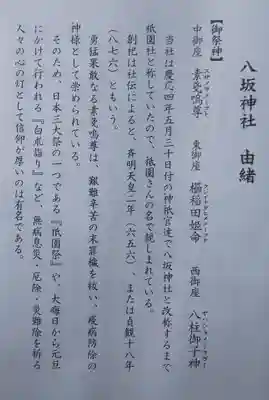 八坂神社 由緒
【御祭神】
中御座 素戔嗚尊 東御座 櫛稲田姫命 西御座 八柱御子神
当社は慶応四年五月三十日付の神祇官達で八坂神社と改称するまで
祇園社と称していたので、祇園さんの名で親しまれている。
創祀は社伝によると、斉明天皇二年(六五六)、または貞観十八年
(八七六)ともいう。
勇猛果敢なる素戔嗚尊は、艱難辛苦の末罪穢を祓い、疫病防除の
神様として崇められている。
そのため、日本三大祭の一つである『祇園祭』や、大晦日から元旦
にかけて行われる『白朮詣り』など、無病息災・厄除・災難除を祈る
人々の心の灯として信仰が厚いのは有名である。